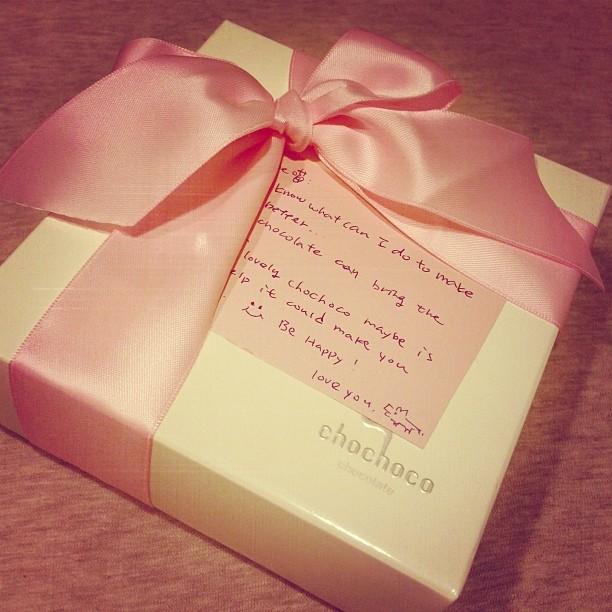 know what can I do to make
better...
chocolate can bring the
lovely chochoco maybe is
it could make you
Be Happy!
love you,
chochoco
chocolate